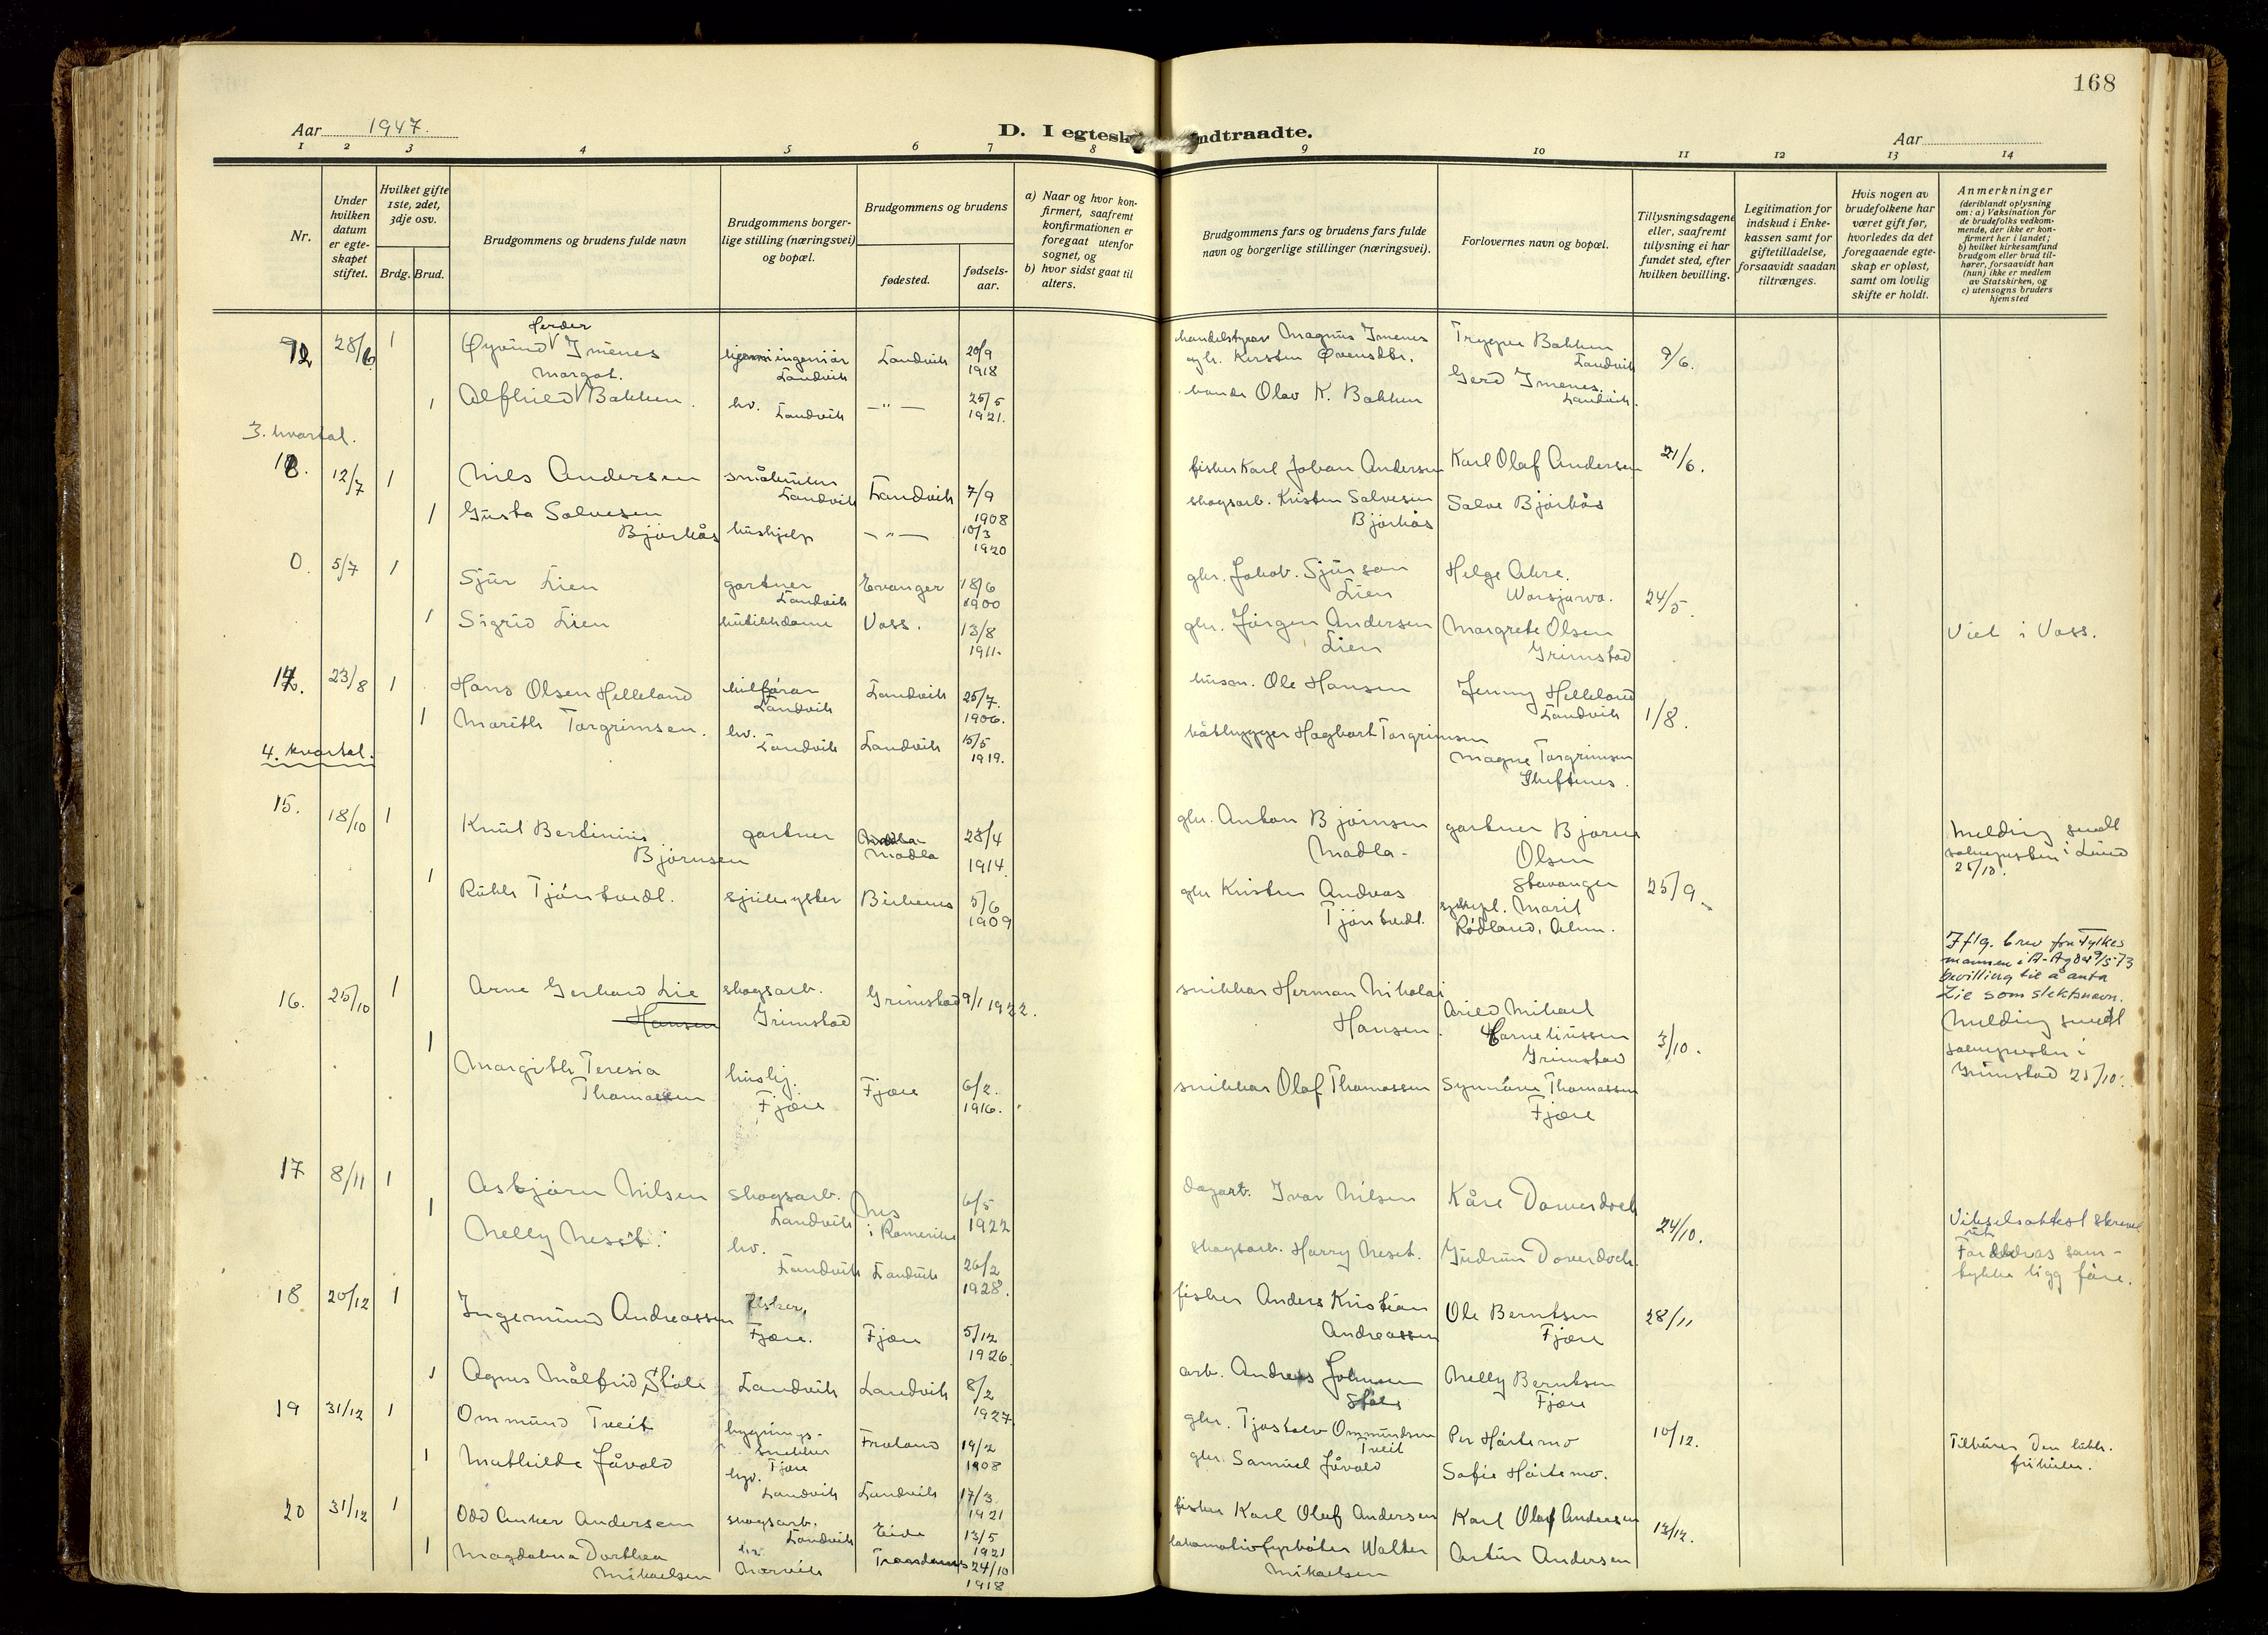 168
Aar 1947.
D. I egtesk
ndtraadte.
Aar
1 2 3 4 5 6 7 8 9 10 11 12 13 14
Nr.
Under hvilken datum er egteskapet stiftet.
Hvilket gifte 1ste, 2det, 3dje osv.
Brdg. Brud.
Brudgommens og brudens fulde navn
Brudgommens borgerlige stilling (næringsvei) og bopæl.
Brudgommens og brudens
fødested.
fødselsaar.
a) Naar og hvor konfirmert, saafremt konfirmationen er foregaat utenfor sognet, og
b) hvor sidst gaat til alters.
Brudgommens fars og brudens fars fulde navn og borgerlige stillinger (næringsvei).
Forlovernes navn og bopæl.
Tillysningsdagene eller, saafremt tillysning ei har fundet sted, efter hvilken bevilling.
Legitimation for indskud i Enkekassen samt for giftetilladelse, forsaavidt saadan tiltrænges.
Hvis nogen av brudefolkene har været gift før, hvorledes da det foregaaende egteskap er opløst, samt om lovlig skifte er holdt.
Anmerkninger
(deriblandt oplysning om: a) Vaksination for de brudefolks vedkommende, der ikke er konfirmert her i landet; b) hvilket kirkesamfund brudgom eller brud tilhører, forsaavidt han (hun) ikke er medlem av Statskirken, og c) utensogns bruders hjemsted
12 28/6 1 Øyvind Herder Imenes ingeniør Landvik Landvik 20/9 1918 Magnus Imenes Trygve Bakken Landvik 9/6.
Kirsten
1 Alfhild Margot. Bakken. hv. Landvik — " — 25/5 1921. bonde Olav K. Bakken Gerd Imenes. Landvik.
3. kvartal.
13. 12/7 1 Nils Andersen småbruker Landvik Landvik 7/9 1908 fisker Karl Johan Andersen Karl Olaf Andersen 21/6.
1 Gusta Salvesen Bjørkås hushjelp — " — 10/3 1920 skogsarb. Kristen Salvesen Bjørkås Salve Bjørkås
0. 5/7 1 Sjur Lien gartner Landvik Evanger 18/6 1900 gbr. Jakob Sjurson Lien Helge Akre. 24/5
1 Sigrid Lien butikkdame Voss. 13/8 1911. gbr. Jørgen Andersen Lien Margrete Olsen Grimstad Viet i Voss.
14. 23/8 1 Hans Olsen Helleland bilfører Landvik Landvik 25/7. 1906. husm. Ole Hansen Jenny Helleland Landvik 1/8.
1 Marith Torgrimsen. hv. Landvik Landvik 15/5 1919. båtbygger Hagbart Torgrimsen Magne Torgrimsen
4. kvartal.
15. 18/10 1 Knut Bertinius Bjørnsen gartner Madla 28/4 1914. gbr. Anton Bjørnsen Madla - gartner Bjarne Olsen Stavanger 25/9. Melding sendt soknepresten i Lund 25/10.
1 Ruth Tjøntvedt. Birkenes 5/6 1909 gbr Kristen Andreas Tjøntvedt. Marit Rødland,
16. 25/10 1 Arne Gerhard Lie Hansen skogsarb. Grimstad Grimstad 9/1 1922. snikkar Herman Nikolai Hansen. Mikael Corneliussen Grimstad 3/10.
Iflg. brev fra Fylkesmannen i A-Agder 9/5-73 bevilling til å anta Lie som slektsnavn.
Melding sendt soknepresten i Grimstad 25/10.
1 Margith Teresia Thomassen hushj. Fjære Fjære 6/2. 1916. snikkar Olaf Thomassen Synnøve Thomassen Fjære
17 8/11 1 Asbjørn Nilsen skogsarb. Landvik Nes i Romerike 6/5 1922 Ivar Nilsen Kåre 24/10.
1 Nelly Neset. hv. Landvik Landvik 26/2 1928. skogsarb. Harry Neset. Gudrun
Vigselsattest skrevet ut
Foreldras samtykke ligg føre.
18 20/12 1 Ingemund Andreassen fisker, Fjære. Fjære 5/12 1926. fisker Anders Kristian Andreassen Ole Berntsen Fjære 28/11
1 Agnes Målfrid Støle Landvik Landvik 8/2 1927. arb. Andreas Johnsen Støle Nelly Berntsen Fjære
19 31/12 1 Ommund Tveit bygningssnekker Fjære Froland 19/2 1908 gbr. Ommundsen Tveit Per Hørtemo 10/12.
1 Mathilde Jåvold Landvik Landvik 17/3. 1921 gbr. Samuel Jåvold Sofie Hørtemo. Tilhører Den luth. frikirke.
20 31/12 1 Odd Anker Andersen skogsarb. Landvik Eide 13/5 1921 fisker Karl Olaf Andersen Karl Olaf Andersen 12/12.
1 Magdalena Dorthea Mikaelsen hv. Narvik 24/10 1918 lokomotivfyrbøter Walter Mikaelsen Artur Andersen